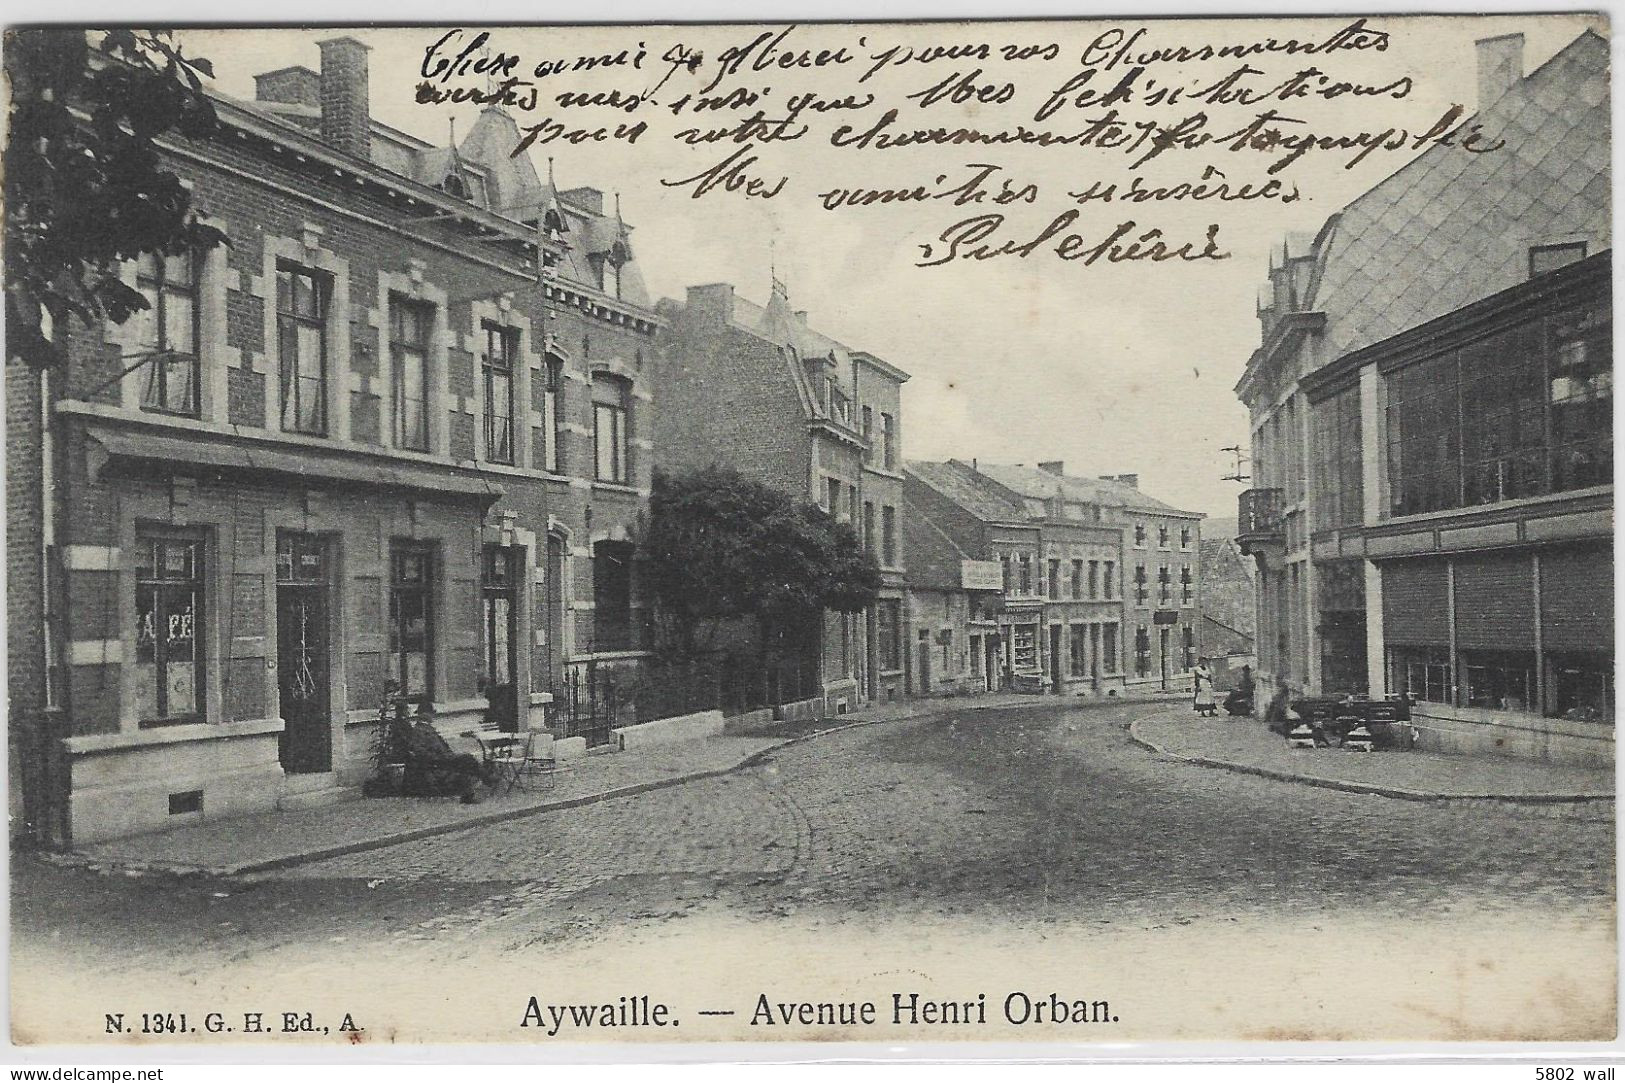 Chère amie Je Merci pour vos Charmantes
cartes insi que Mes felisitations
pour votre charmante Fotographie
Mes amitiés sinsères
Pulchérie
CAFÉ
N. 1341. G. H. Ed., A.
Aywaille. — Avenue Henri Orban.
delcampe.net
5802_wall